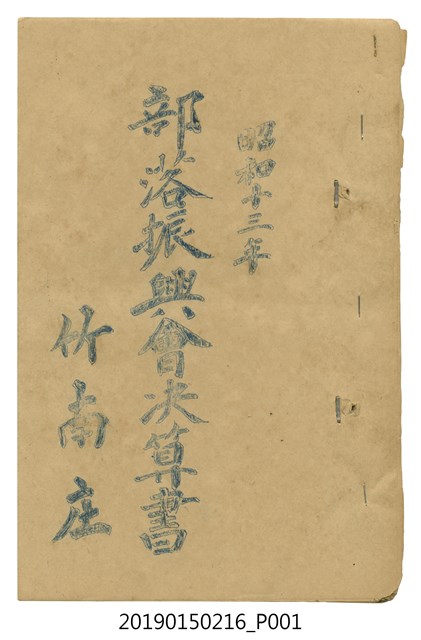 昭和十三年
部落振興會決算書
竹南庄
20190150216_P001